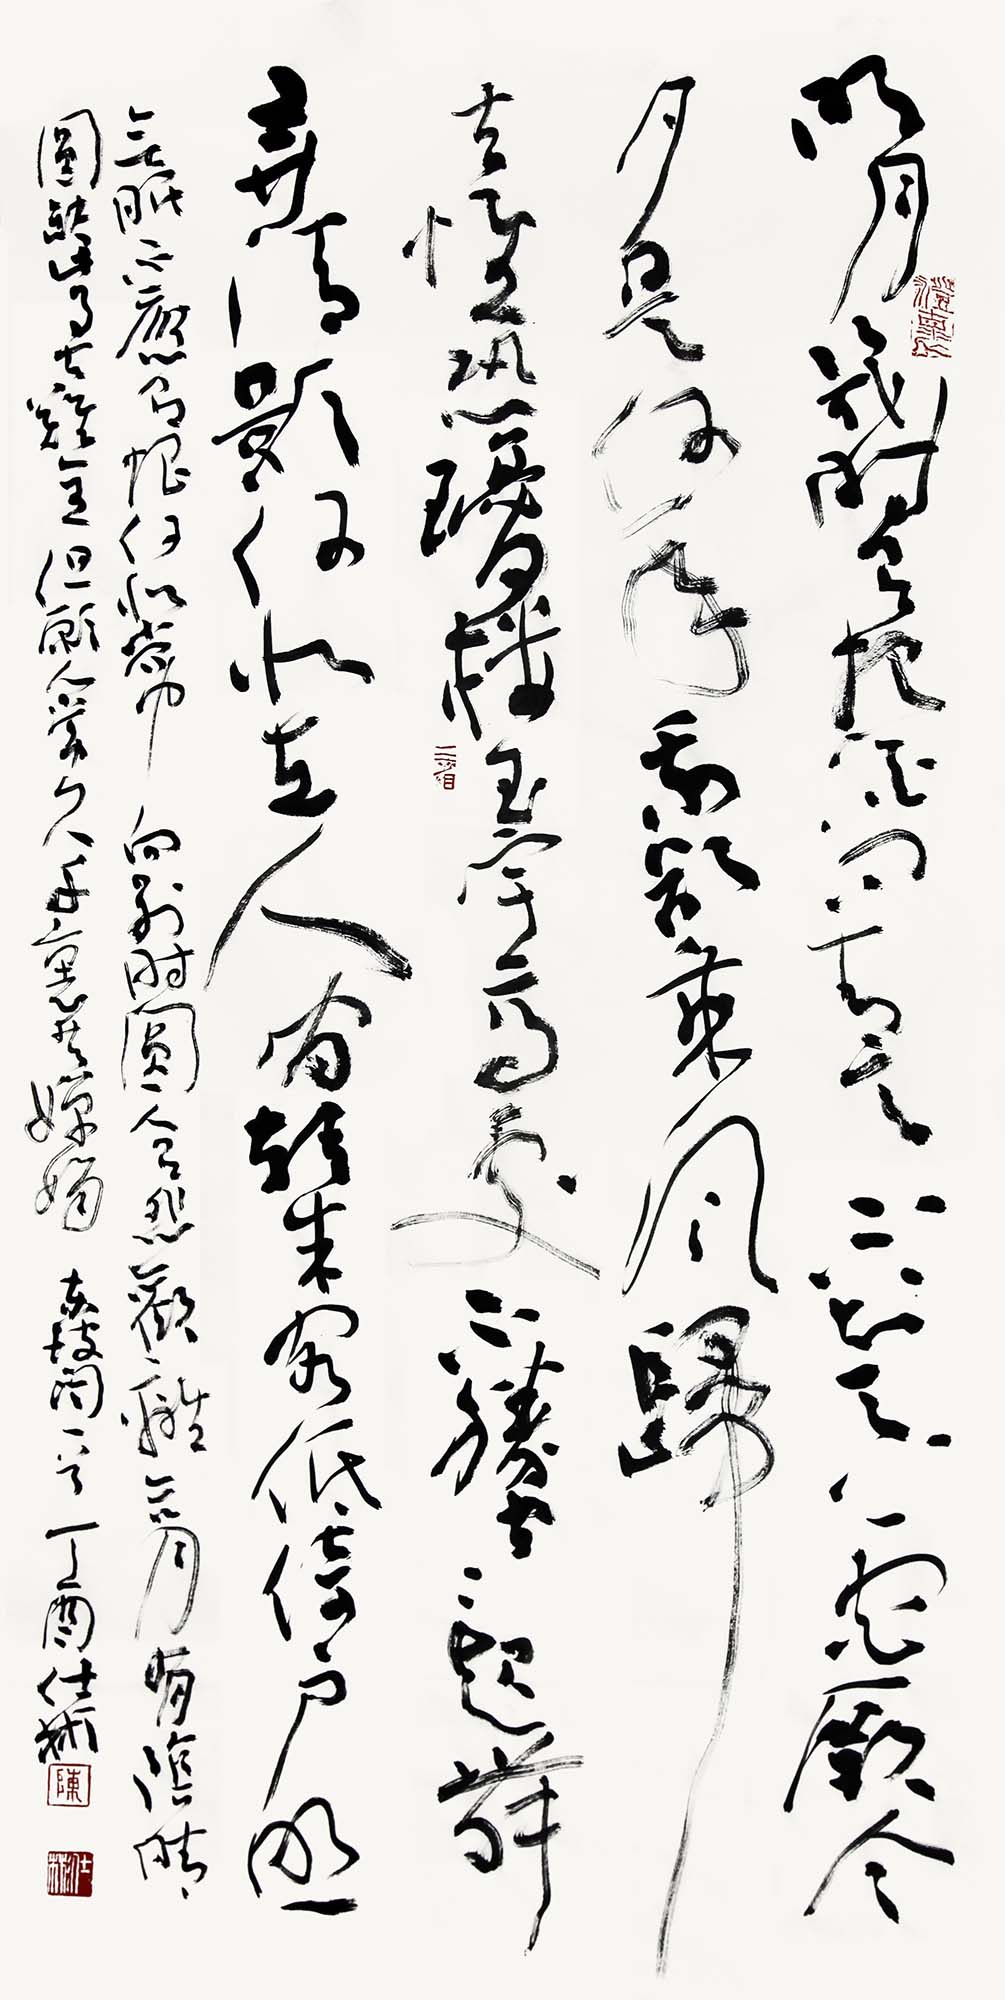 明月幾時有把酒問青天不知天上宮闕今
夕是何年我欲乘風歸
去惟恐瓊樓玉宇高處不勝寒起舞
弄清影何似在人間轉朱閣低綺戶照
無眠不應有恨何似常向別時圓人有悲歡離合月有陰晴
圓缺此事古難全但願人長久千里共嬋娟 東坡詞一首 丁酉仕彬
陳
仕彬
三省